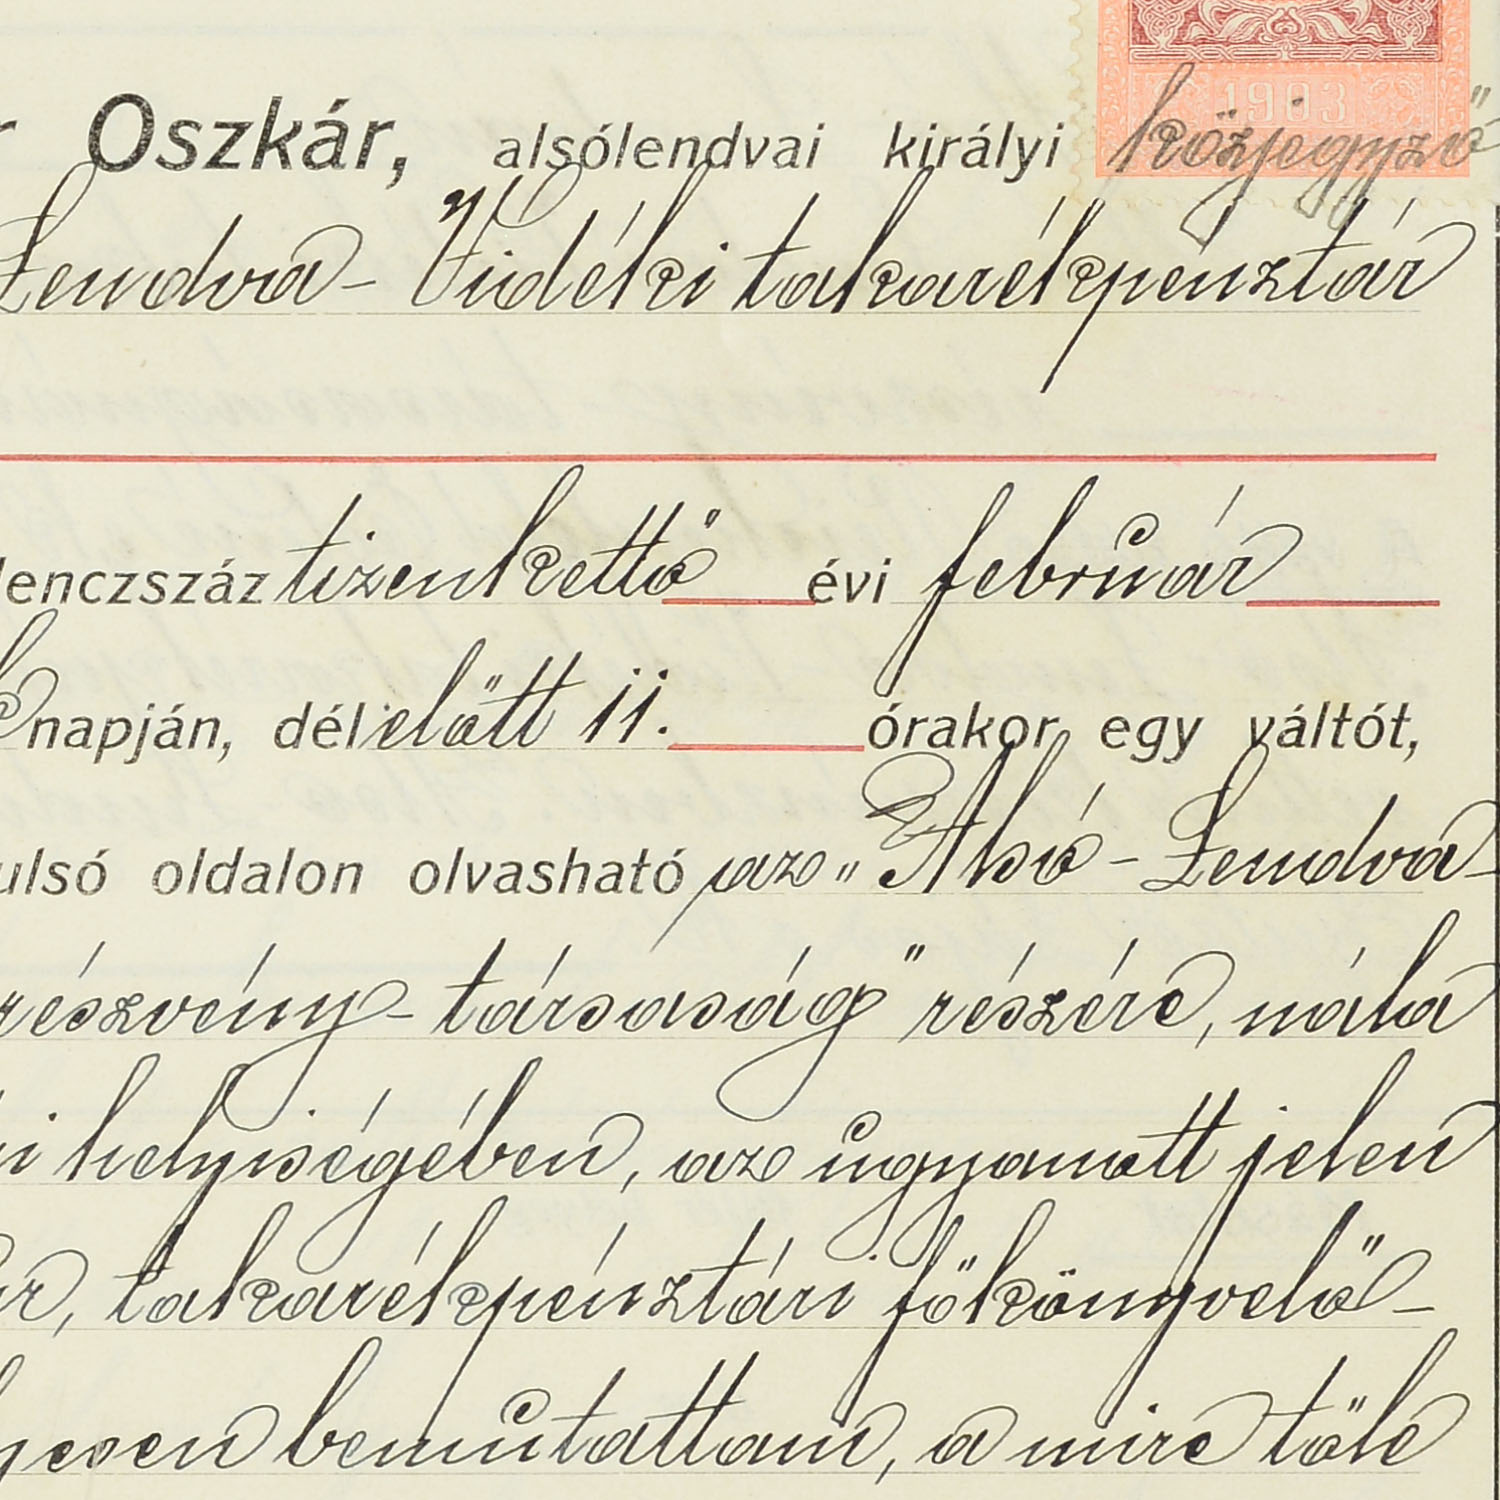 r Oszkár, alsólendvai királyi közjegyző
1903
Lendva-Vidéki takarékpénztár
lenczszáz tizenkettő évi február
napján, dél előtt 11. órakor egy váltót,
ulsó oldalon olvasható az „Alsó-Lendva-
részvény-társaság" részére, nála
i helyiségében, az ugyanott jelen
r, takarékpénztári főkönyvelő-
yesen bemutattam, a mire tőle